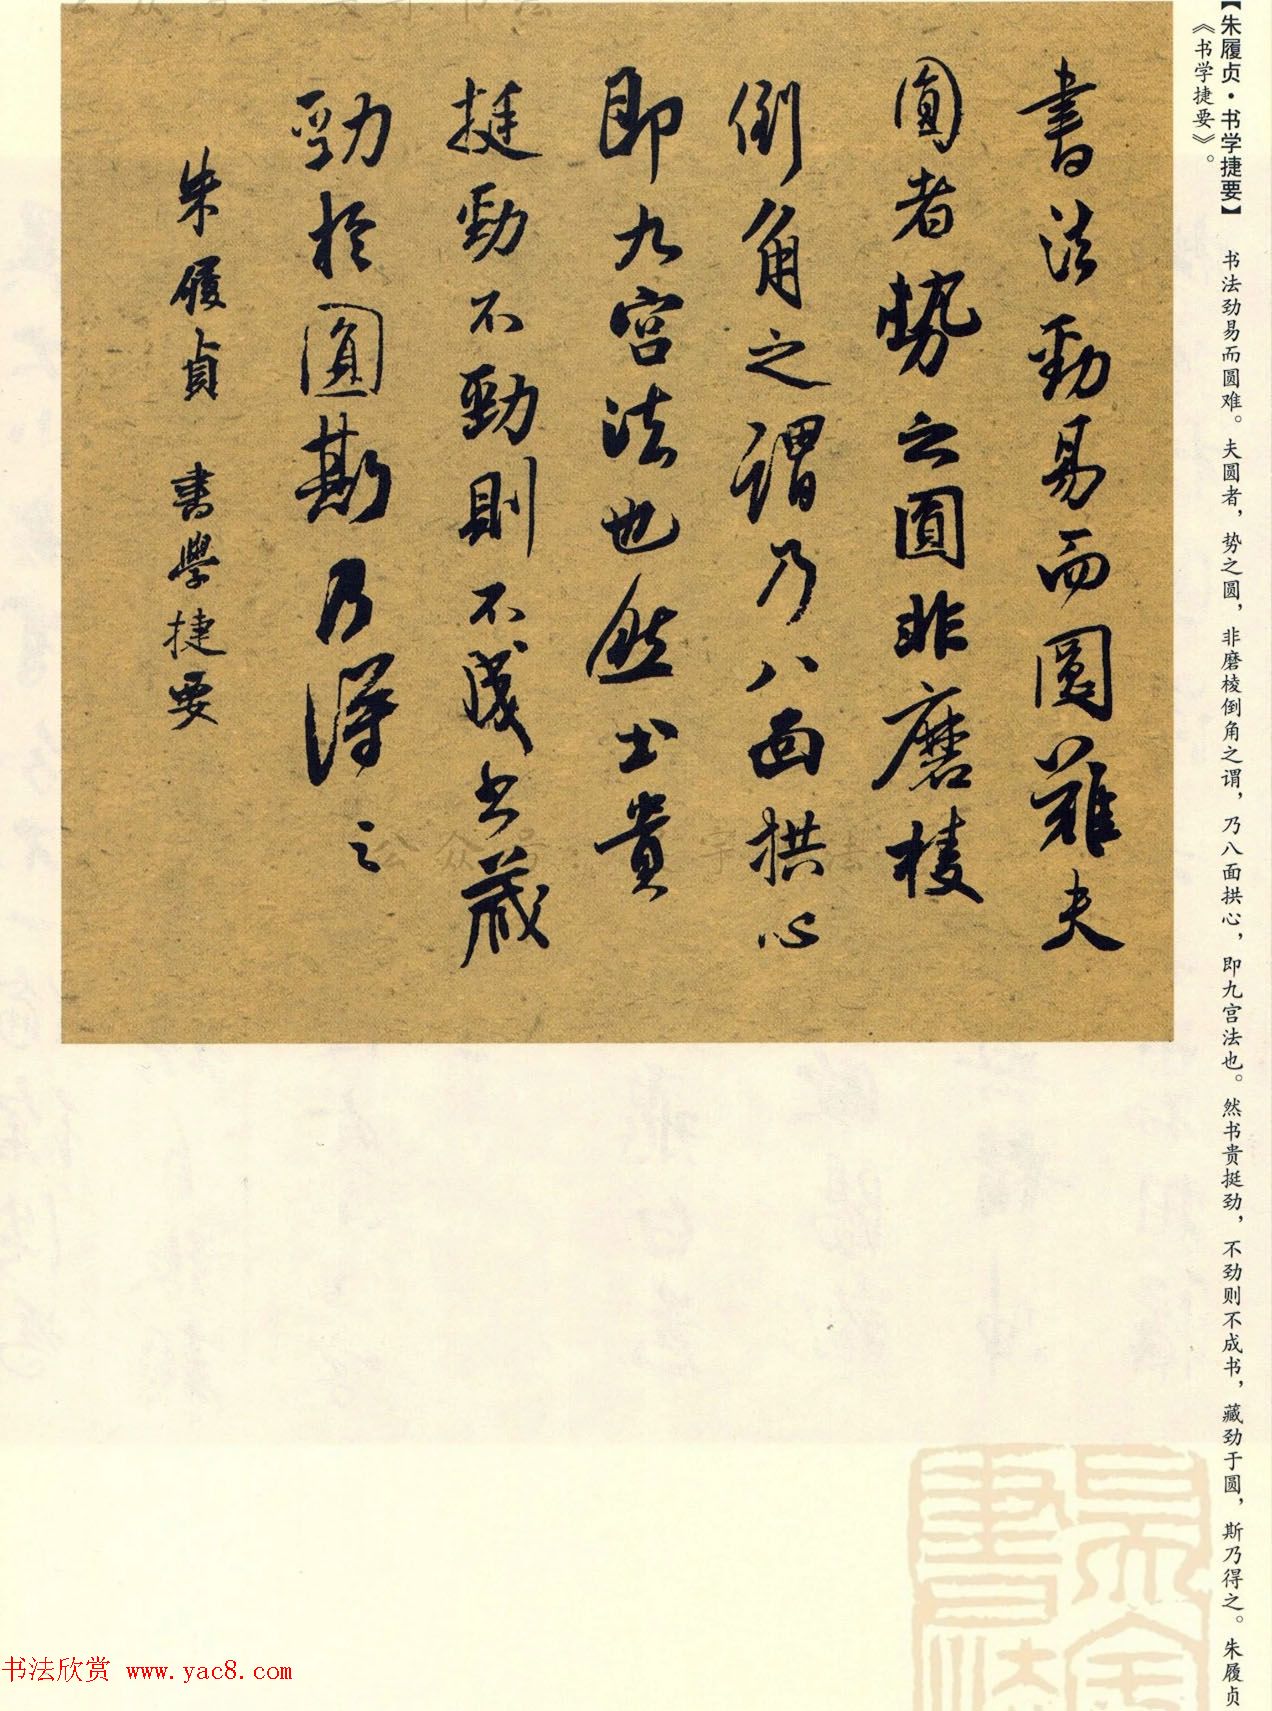 【朱履贞·书学捷要】 书法劲易而圆难。夫圆者，势之圆，非磨棱倒角之谓，乃八面拱心，即九宫法也。然书贵挺劲，不劲则不成书，藏劲于圆，斯乃得之。朱履贞
《书学捷要》。
書法勁易而圓難夫
圓者勢之圓非磨棱
倒角之謂乃八面拱心
即九宮法也然書貴
挺勁不勁則不成書藏
勁於圓斯乃得之
朱履貞 書學捷要
书法欣赏 www.yac8.com